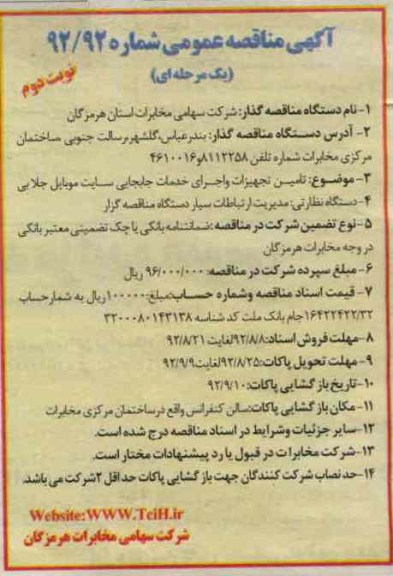 آگهی مناقصه عمومی شماره ۹۲/۹۲
(یک مرحله ای)
نوبت دوم
۱-نام دستگاه مناقصه گذار: شرکت سهامی مخابرات استان هرمزگان
۲- آدرس دستگاه مناقصه گذار: بندرعباس،گلشهر،رسالت جنوبی ساختمان
مرکزی مخابرات شماره تلفن ۸۱۱۲۲۵۸و۴۶۱۰۰۱۶
۳-موضوع: تامین تجهیزات واجرای خدمات جابجایی سایت موبایل جلابی
۴-دستگاه نظارتی: مدیریت ارتباطات سیار دستگاه مناقصه گزار
۵-نوع تضمین شرکت در مناقصه :ضمانتنامه بانکی یا چک تضمینی معتبر بانکی
در وجه مخابرات هرمزگان
۶-مبلغ سپرده شرکت در مناقصه: ۹۶/۰۰۰/۰۰۰ ریال
۷- قیمت اسناد مناقصه وشماره حساب:مبلغ:۱۰۰۰۰۰ریال به شمارحساب
۱۶۴۲۲۴۲۲/۳۲جام بانک ملت کد شناسه ۳۲۰۰۰۸۰۱۴۳۱۳۸
۸-مهلت فروش اسناد:۹۲/۸/۸لغایت ۹۲/۸/۲۱
۹- مهلت تحویل پاکات:۹۲/۸/۲۵لغایت۹۲/۹/۹
۱۰-تاریخ باز گشایی پاکات:۹۲/۹/۱۰
۱۱-مکان باز گشایی پاکات:سالن کنفرانس واقع درساختمان مرکزی مخابرات
۱۲-سایر جزئیات وشرایط در اسناد مناقصه درج شده است.
۱۳-شرکت مخابرات در قبول یا رد پیشنهادات مختار است.
۱۴-حد نصاب شرکت کنندگان جهت باز گشایی پاکات حداقل ۲شرکت می باشد.
Website:WWW.TciH.ir
شرکت سهامی مخابرات هرمزگان